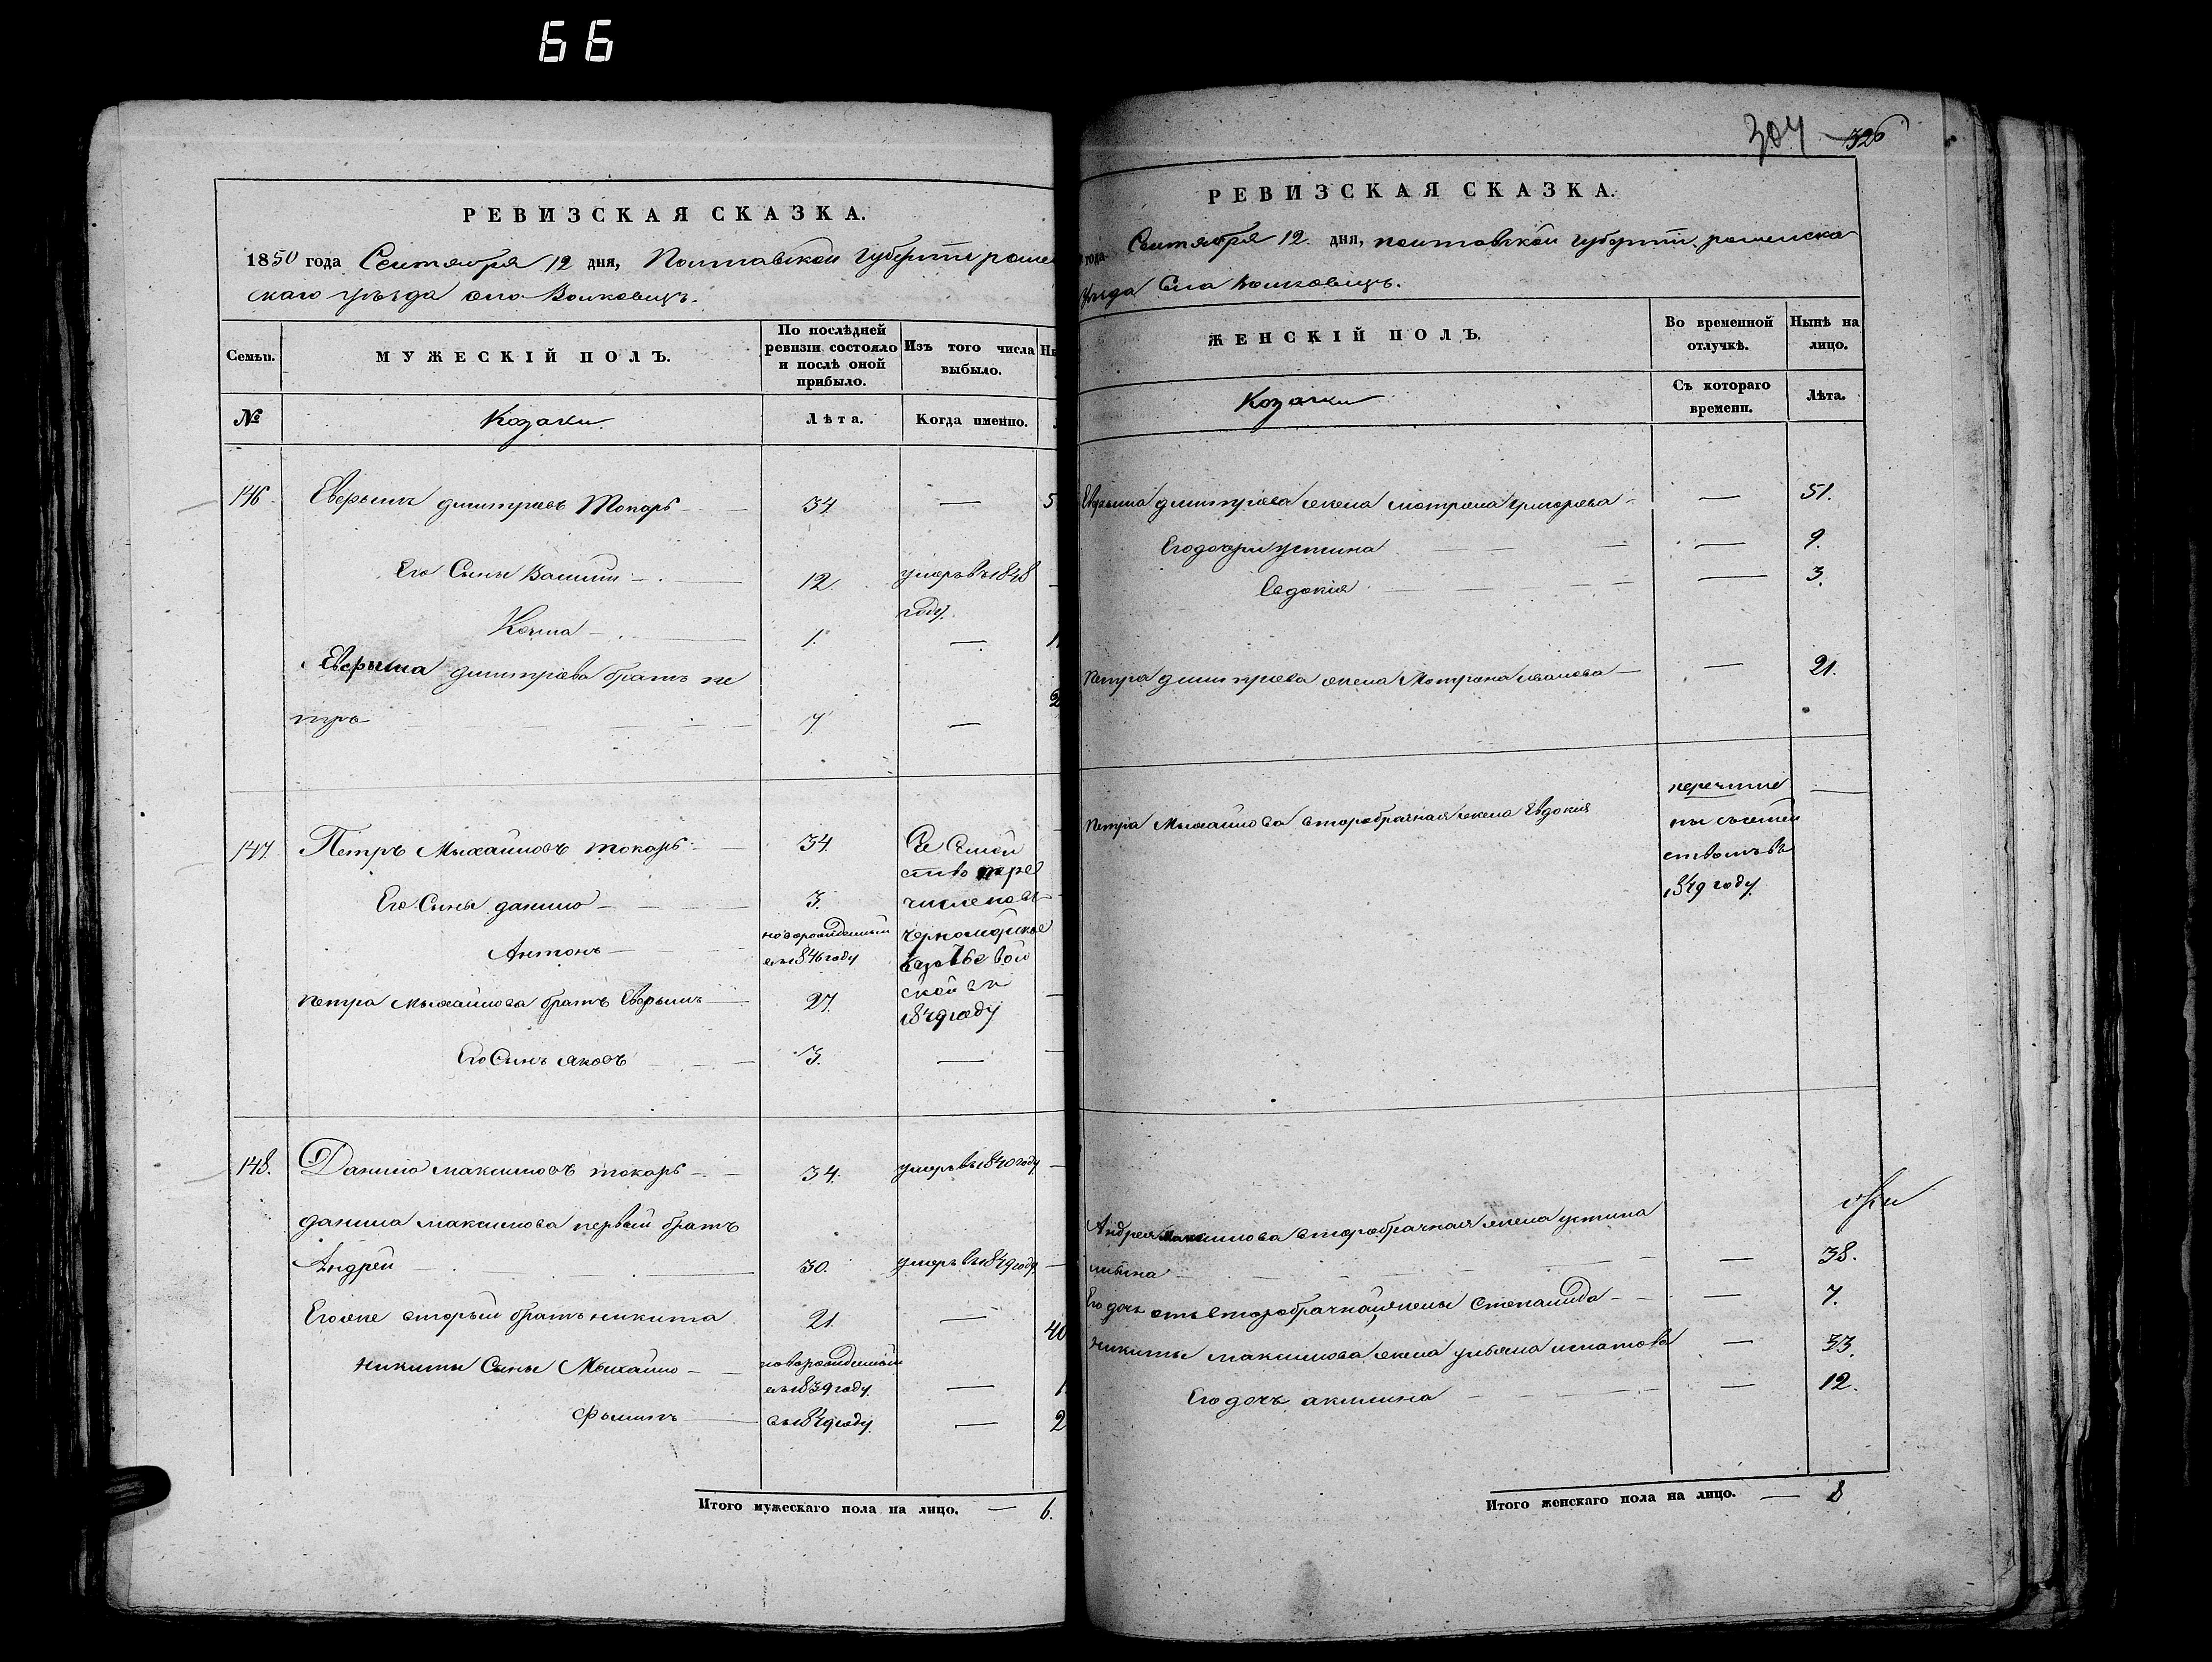 66
РЕВИЗСКАЯ СКАЗКА.
1850 года Сентября 12 дня, Полтавской Губернии роме
скаго уѣзда села Волковецъ.
Семьи.
МУЖЕСКІЙ ПОЛЪ.
По послѣдней ревизіи состояло и послѣ оной прибыло.
Изъ того числа выбыло.
№
Козаки
Лѣта.
Когда именно.
146. Евфимъ дмитріевъ Токарь 34. — 5
Его Сыны Василій 12. умеръ въ 1848
году.
Козма 1. — 1
Евфима дмитріева братъ пе 2
тръ 7 —
147. Петръ Михайловъ токарь 34. Съ Семей
ство пере
Его Сыны данило 3. численъ въ
новорожденный черноморское
Антонъ въ 1846 году казачье вой
ской въ
петра михайлова братъ Евфимъ 27. 1849 году
Его Сынъ яковъ 3. —
148. Данило максимовъ токарь 34. умеръ въ 1840 году
данила максимова первый братъ
Андрей 30. умеръ въ 1849 году
Его же вторый братъ никита 21. — 40
никиты Сыны Михайло новорожденный
въ 1839 году — 1
Филипъ въ 1849 году — 2
Итого мужескаго пола на лицо. — 6.
304 326
РЕВИЗСКАЯ СКАЗКА.
года Сентября 12. дня, полтавской губерніи роменска
уѣзда Села Волковецъ.
ЖЕНСКІЙ ПОЛЪ.
Во временной отлучкѣ.
Нынѣ на лицо.
Козачки
Съ котораго времени.
Лѣта.
Евфима дмитріева жена мотрона григорьева — 51.
Его дочери устина — 9.
Евдокія — 3.
петра дмитріева жена Мотрона иванова — 21.
перечисле —
Петра Михайлова второбрачная жена Евдокія ны съ семей
ствомъ въ
1849 году
Андрея максимова второбрачная жена устина
— 38.
Его дочь отъ второбрачной жены Степанида — 7.
никиты максимова жена ульяна игнатова — 33.
Его дочь акилина — 12.
Итого женскаго пола на лицо. — 8